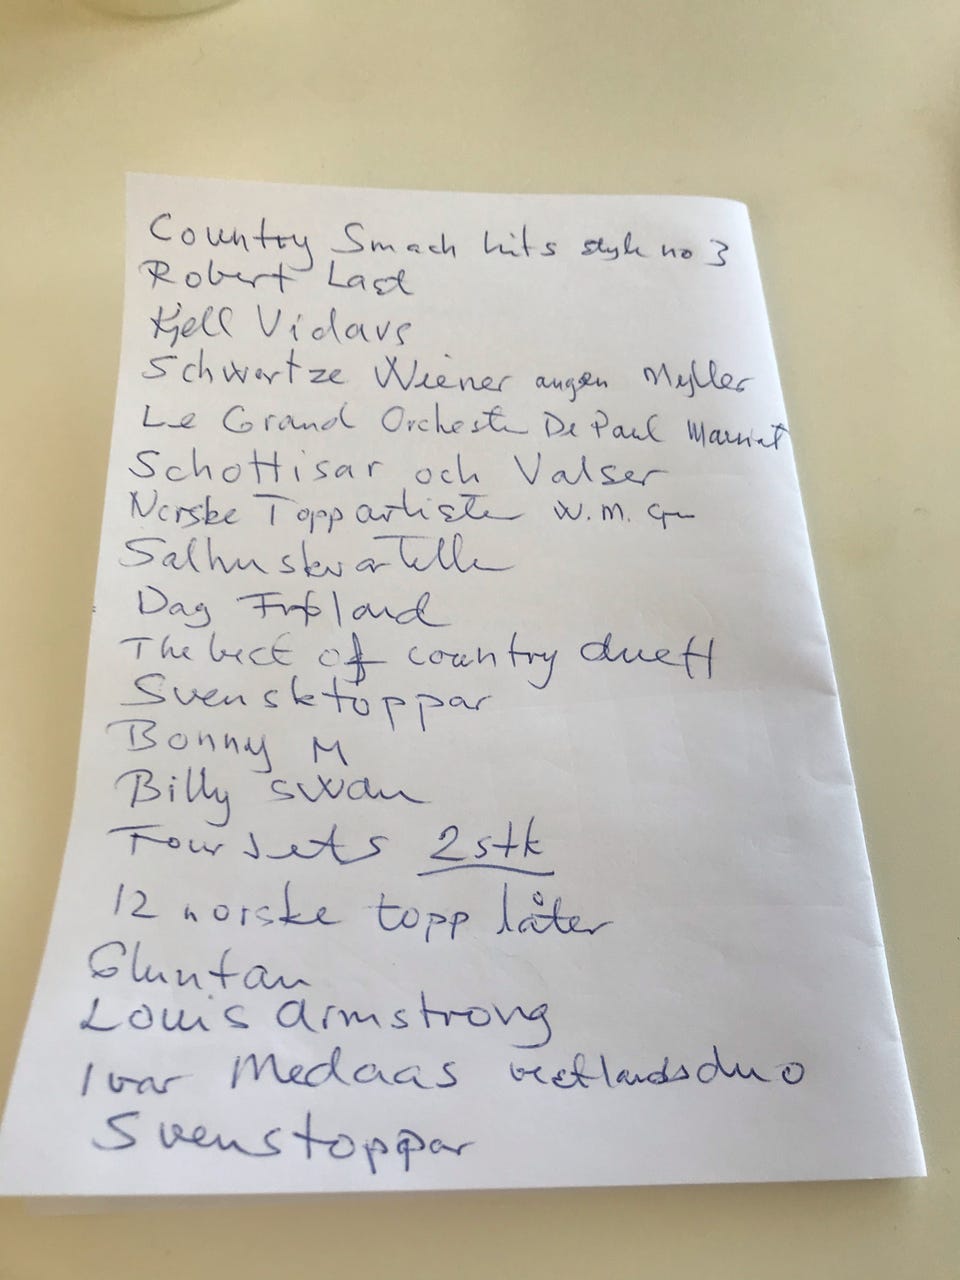 Country Smach hits style no 3
Robert Last
Kjell Vidars
Schwartze Wiener augen Myller
Le Grand Orchester De Paul Mauriat
Schottisar och Valser
Norske Toppartister W.M.
Salhuskvartetten
Dag Frøland
The best of country duett
Svensktoppar
Bonny M
Billy swan
Four Jets 2 stk
12 norske topp låter
Gluntan
Louis Armstrong
Ivar Medaas vestlandsduo
Svenstoppar